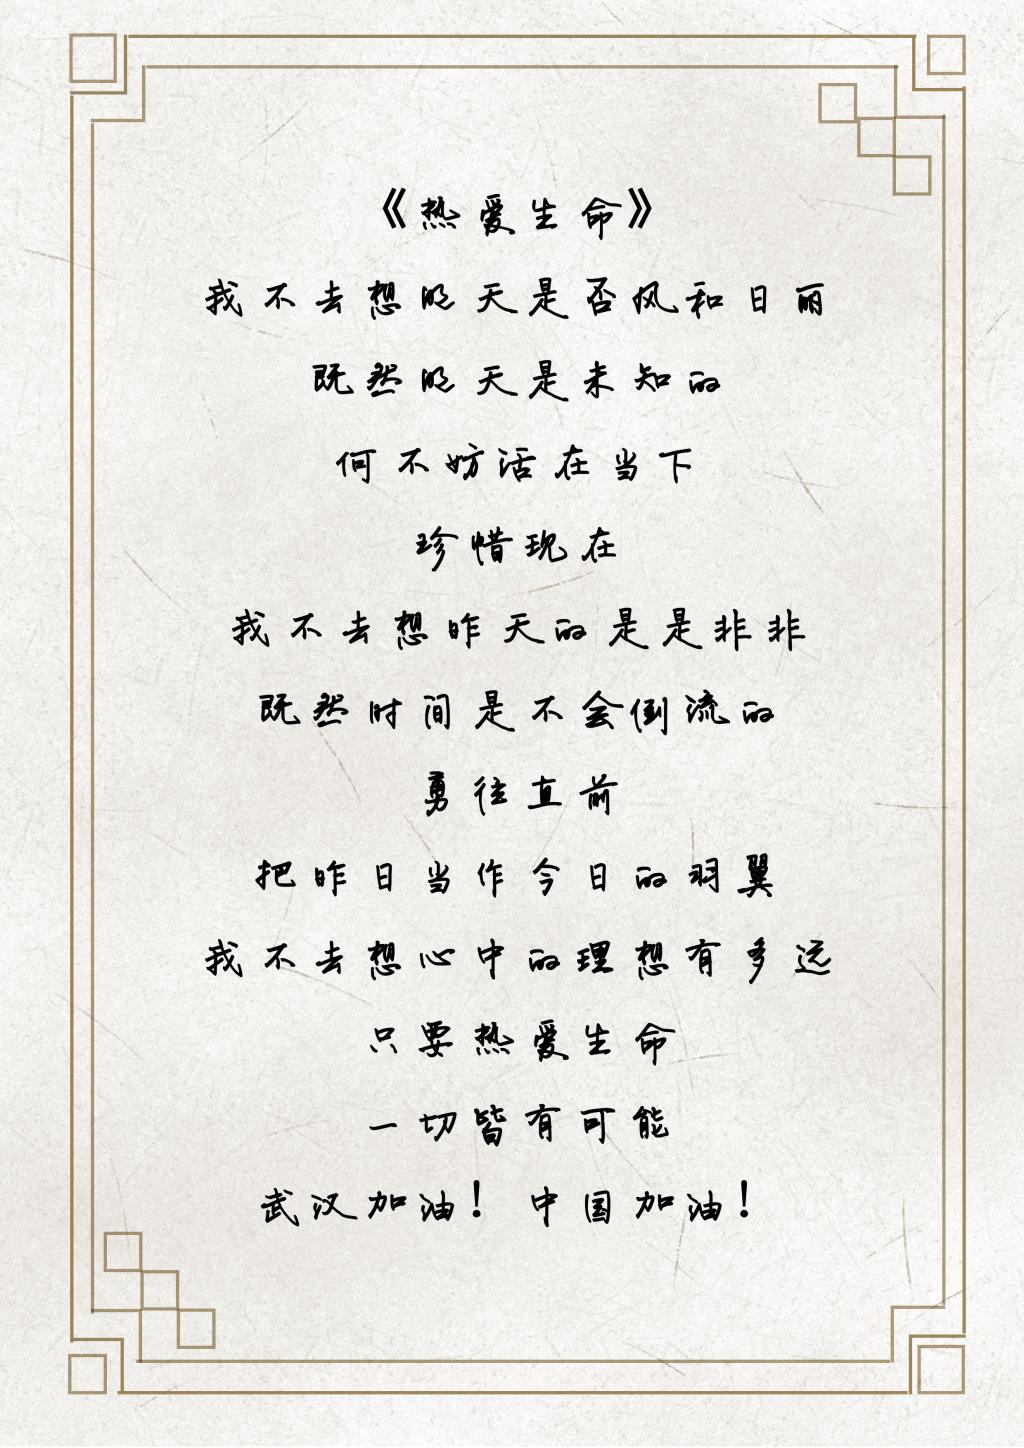 《热爱生命》
我不去想明天是否风和日丽
既然明天是未知的
何不妨活在当下
珍惜现在
我不去想昨天的是是非非
既然时间是不会倒流的
勇往直前
把昨日当作今日的羽翼
我不去想心中的理想有多远
只要热爱生命
一切皆有可能
武汉加油！ 中国加油！